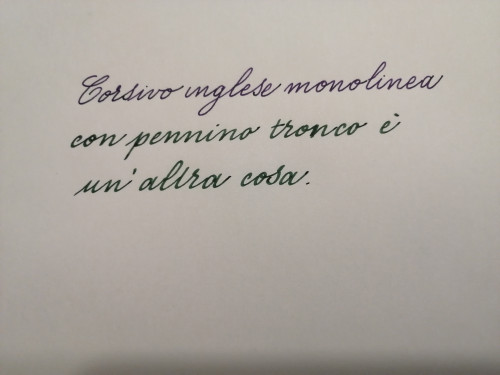 Corsivo inglese monolinea
con pennino tronco è
un'altra cosa.